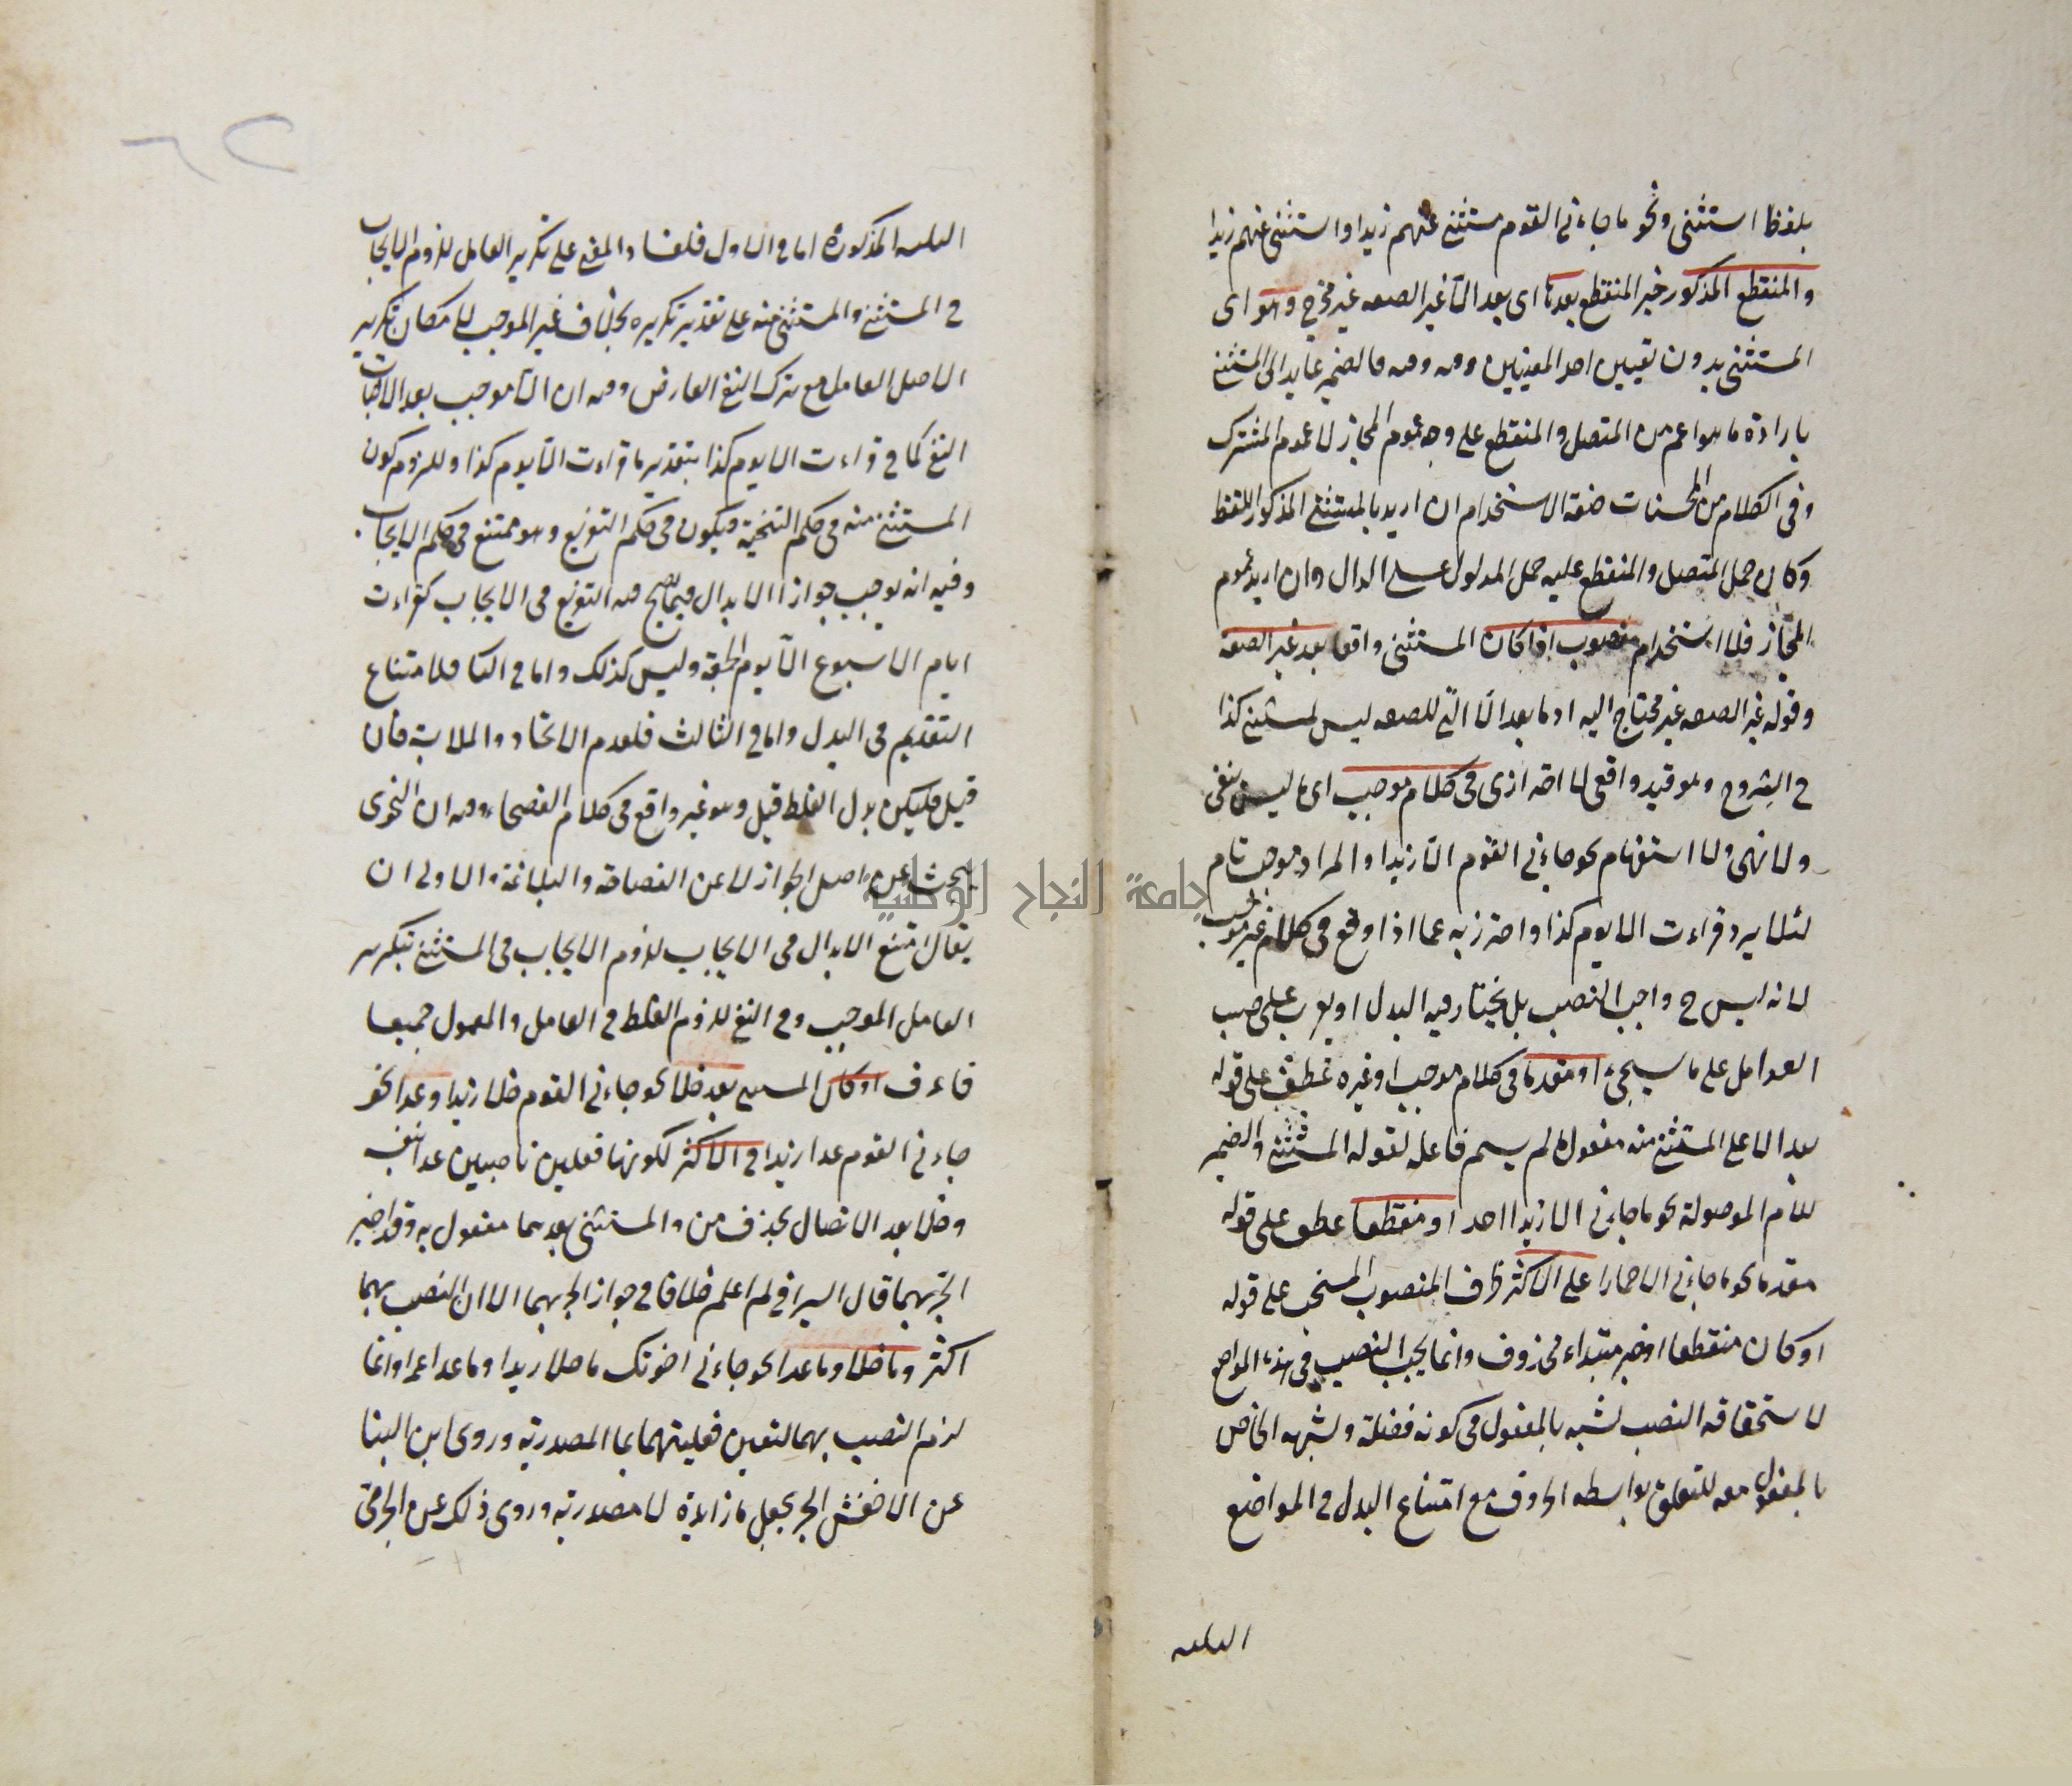 بلفظ استثنى ونحو ما جاءنى القوم مستثنى عنهم زيدا واستثنى عنهم زيدا
والمنقطع المذكور خبر المنقطع بعدها اى بعد الا غير الصفه غير مخرج وهو اى
المستثنى بدون تعيين احد المعنيين وفيه ومنه فالضمير عايد الى المستثنى
بارادة ما هو اعم من المتصل والمنقطع على وجه عموم المجاز لا عموم المشترك
وفى الكلام من المحسنات صنعة الاستخدام ان اريد بالمستثنى المذكور اللفظ
وكان حمل المتصل والمنقطع عليه حمل المدلول على الدال وان اريد عموم
المجاز فلا استخدام منصوب اذا كان المستثنى واقعا بعد غير الصفة
وقوله غير الصفه غير محتاج اليه اذ ما بعد الا التى للصفه ليس لمستثنى كذا
فى الشروح وهو قيد واقعى لا احترازى فى كلام موجب اى ما ليس بنفى
ولا نهى ولا استفهام نحو جاءنى القوم الا زيدا والمراد موجب تام
لئلا يرد قراءت الا يوم كذا واحترز به عما اذا وقع فى كلام غير موجب
لانه ليس ح واجب النصب بل يختار فيه البدل او يعرب على حسب
العوامل على ما سيجئ او مقدما فى كلام موجب او غيره عطف على قوله
بعد الا على المستثنى منه مفعول ما لم يسم فاعله لقوله المستثنى والضمير
للام الموصولة نحو ما جاءنى الا زيدا احد او منقطعا عطف على قوله
مقدما نحو ما جاءنى الا حمارا على الاكثر ظرف المنصوب المنسحب على قوله
او كان منقطعا او خبر مبتداء محذوف وانما يجب النصب فى هذه المواضع
لاستحقاقه النصب لشبه بالمفعول فى كونه فضلة ولشبهه الخاص
بالمفعول معه للتعلق بواسطه الحروف مع امتناع البدل فى المواضع
المذكورة اما فى الاول فلفساد المعنى على تكرير العامل للزوم الايجاب
فى المستثنى والمستثنى منه على تقدير تكريره بخلاف غير الموجب لامكان تكرير
الاصل العامل مع ترك النفى العارض وفيه ان الا موجب بعد الاثبات
النفى كما فى قراءت الا يوم كذا بتقدير ما قراءت الا يوم كذا وللزوم كون
المستثنى منه فى حكم التنحية فيكون فى حكم التفريغ وهو ممتنع فى حكم الايجاب
وفيه انه يوجب جواز الابدال فيما يصح فيه التفريغ فى الايجاب كقراءت
ايام الاسبوع الا يوم الجمعة وليس كذلك واما فى الثانى فلامتناع
التقديم فى البدل واما فى الثالث فلعدم الاتحاد والملابسة فان
قيل فليكن بدل الغلط قيل وهو غير واقع فى كلام الفصحاء وفيه ان النحوى
يبحث عن اصل الجواز لا عن الفصاحة والبلاغة والاولى ان
يقال امتنع الابدال فى الايجاب للزوم الايجاب فى المستثنى بتكرير
العامل الموجب وفى النفى للزوم الغلط فى العامل والمعمول جميعا
فاعرف او كان المستثنى بعد خلا نحو جاءنى القوم خلا زيدا وعدا نحو
جاءنى القوم عدا زيدا فى الاكثر لكونها فعلين ناصبين عدا بنفسه
وخلا بعد الاتصال بحذف من والمستثنى بعدهما مفعول به وقد اجيز
الجر بهما قال السيرافى لم اعلم خلافا فى جواز الجر بهما الا ان النصب بهما
اكثر وما خلا وما عدا نحو جاءنى اخوتك ما خلا زيدا وما عدا عمرا وانما
لزم النصب بهما لتعين فعليتهما بما المصدرية وروى ابن البنا
عن الاخفش الجر بجعل ما زايدة لا مصدرية وروى ذلك عن الجرمى
٦٢
جامعة النجاح الوطنية